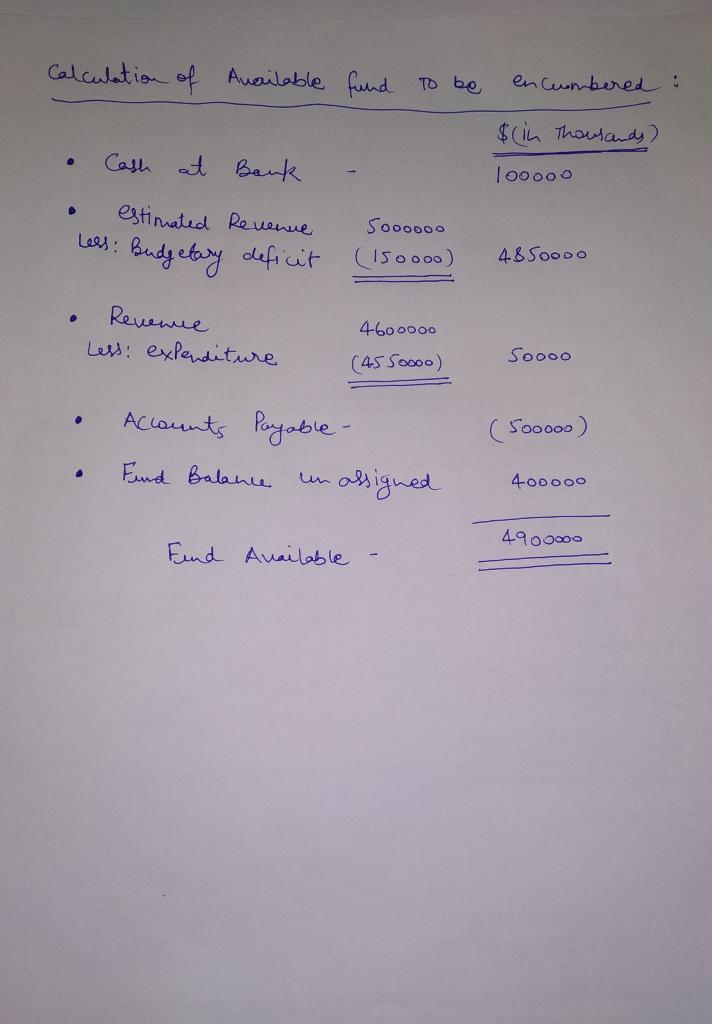 Calculation of Available fund To be encumbered :
$(in Thousands)
• Cash at Bank - 100000
• estimated Revenue 5000000
Less: Budgetary deficit (150000) 4850000
• Revenue 4600000
Less: expenditure (4550000) 50000
• Accounts Payable - (500000)
• Fund Balance un assigned 400000
Fund Available - 4900000